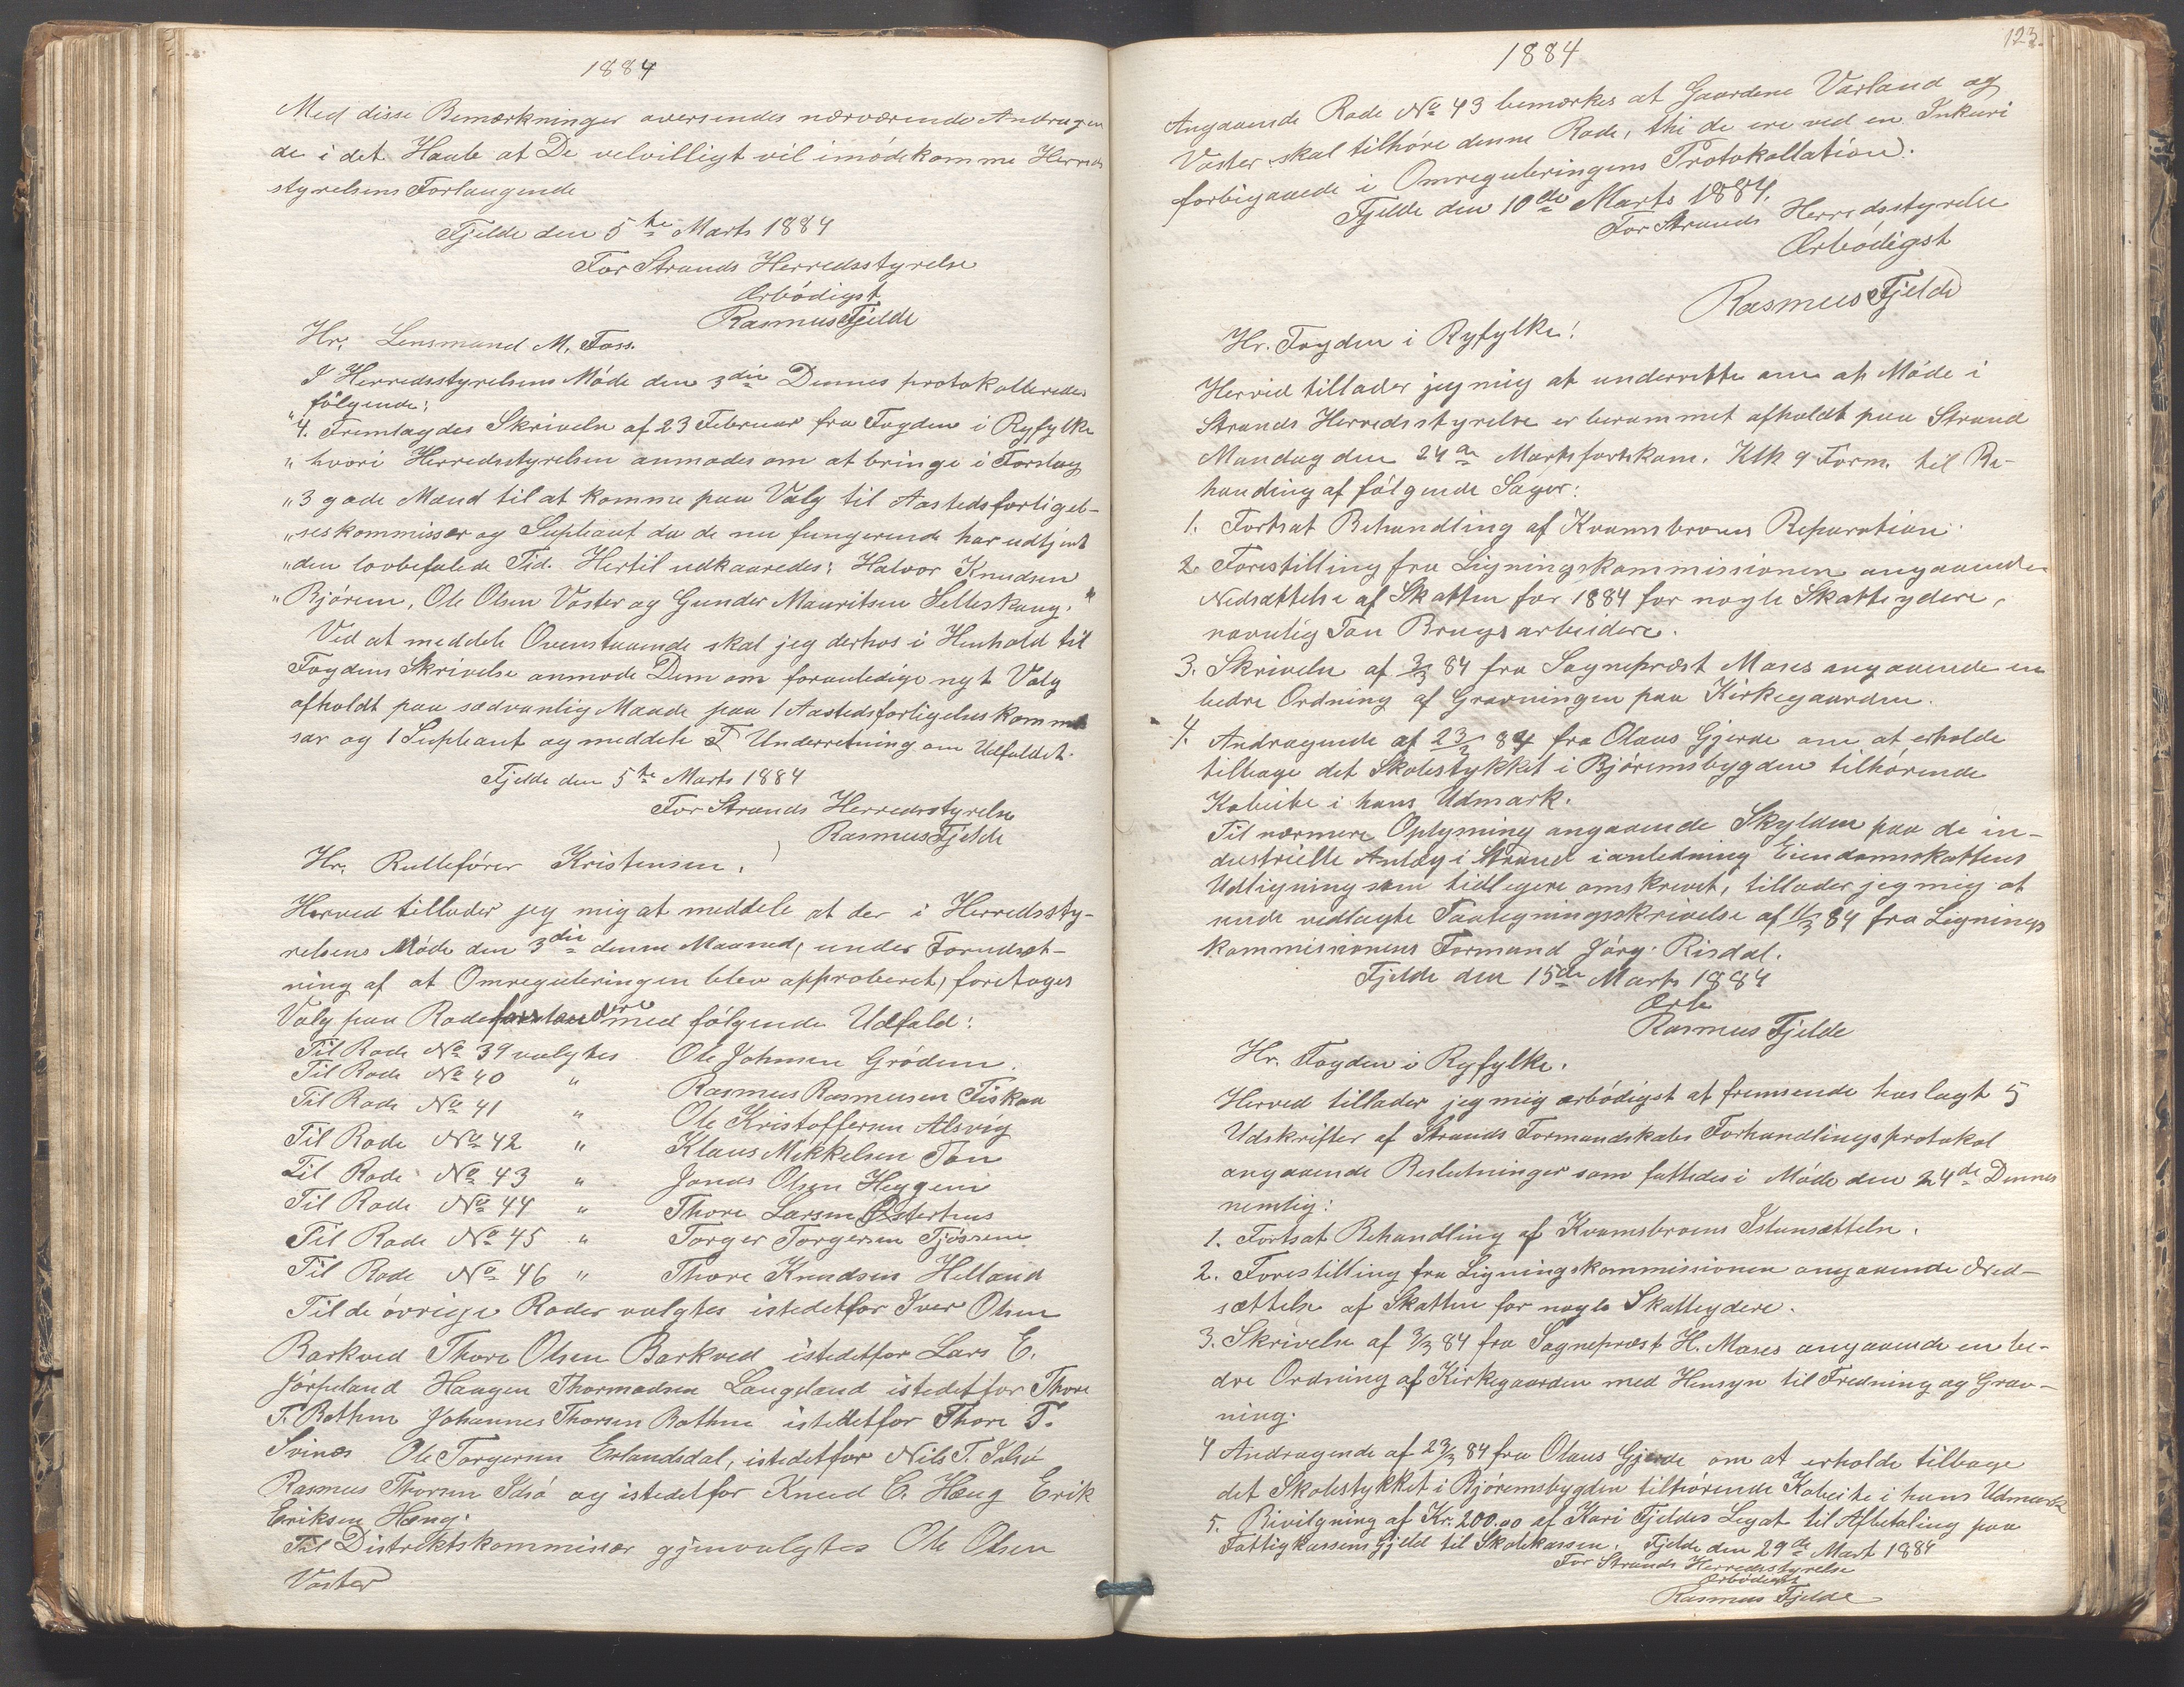 1884
Med disse Bemærkninger oversendes nærværende Andragen
de i det Haab at De velvilligt vil imødekomme Herreds
styrelsens Forlangende
Fjelde den 5te Marts 1884
For Strands Herredsstyrelse
Ærbödigst
Rasmus Fjelde
Hr. Lensmand M. Foss.
I Herredsstyrelsens Möde den 3die Dennes protokolleredes
fölgende:
"4. Fremlagdes Skrivelse af 23 Februar fra Fogden i Ryfylke
" hvori Herredsstyrelsen anmodes om at bringe i Forslag
"3 gode Mænd til at komme paa Valg til Aastedsforligel-
"seskommissær og Supleant da de nu fungerende har udtjent
"den lovbefalede Tid. Hertil udkaaredes: Halvor Knudsen
"Bjørem, Ole Olsen Voster og Gunder Mauritsen Selleskaug."
Ved at meddele Ovenstaaende skal jeg derhos i Henhold til
Fogdens Skrivelse anmode Dem om foranledige nyt Valg
afholdt paa sædvanlig Maade paa 1 Aastedsforligelseskommis
sær og 1 Supleant og meddele Underretning om Udfaldet.
Fjelde den 5te Marts 1884
For Strands Herredsstyrelse
Rasmus Fjelde
Hr. Rullefører Kristensen.
Herved tillader jeg mig at meddele at der i Herredssty-
relsens Möde den 3die denne Maaned, under Forudsæt-
ning af at Omreguleringen blev approberet, foretoges
Valg paa Rodeforstandere med fölgende Udfald:
Til Rode No 39 valgtes Ole Johnsen Grödem.
Til Rode No 40 " Rasmus Rasmussen Fiskaa
Til Rode No 41 " Ole Kristoffersen Alsvig
Til Rode No 42 " Klaus Mikkelsen Tau
Til Rode No 43 " Jonas Olsen Heggem
Til Rode No 44 " Thore Larsen Østerhus
Til Rode No 45 " Torger Torgersen Tjössem
Til Rode No 46 " Thore Knudsen Helland
Til de övrige Roder valgtes istedetfor Iver Olsen
Barkved Thore Olsen Barkved istedetfor Lars E.
Jörpeland Haagen Thormodsen Langeland istedetfor Thore
T. Bothne Johannes Thorsen Bothne istedetfor Thore T.
Svines Ole Torgersen Erlandsdal, istedetfor Nils T. Idsö
Rasmus Thorsen Idsö og istedetfor Knud C. Hæng Erik
Eriksen Hæng.
Til Distriktskommissær gjenvalgtes Ole Olsen
Voster
123.
1884
Angaaende Rode No 43 bemærkes at Gaardene Varland og
Voster skal tilhöre denne Rode, thi de ere ved en Inkuri
forbigaaede i Omreguleringens Protokollation.
Fjelde den 10de Marts 1884.
For Strands Herredsstyrelse
Ærbödigst
Rasmus Fjelde
Hr. Fogden i Ryfylke!
Herved tillader jeg mig at underrette om at Möde i
Strands Herredsstyrelse er berammet afholdt paa Strand
Mandag den 24de Marts förstkom. Klk 9 Form. til Be-
handling af fölgende Sager:
1. Fortsat Behandling af Kvamsbroens Reparation
2. Forestilling fra Ligningskommissionen angaaende
Nedsættelse af Skatten for 1884 for nogle Skatteydere,
navnlig Tau Brugs arbeidere.
3. Skrivelse af 3/3 84 fra Sogneprest Moses angaaende en
bedre Ordning af Gravningen paa Kirkegaarden.
4. Andragende af 23/2 84 fra Olaus Gjerde om at erholde
tilbage det Skolestykket i Björemsbygden tilhörende
Kobeite i hans Udmark.
Til nærmere Oplysning angaaende Skylden paa de in-
dustrielle Anlæg i Strand i anledning Eiendomsskattens
Udligning som tidligere omskrevet, tillader jeg mig at
sende vedlagte Paategningsskrivelse af 11/3 84 fra Lignings
kommissionens Formand Jörg. Risdal.
Fjelde den 15de Marts 1884
Ærb
Rasmus Fjelde
Hr. Fogden i Ryfylke.
Herved tillader jeg mig ærbödigst at fremsende hoslagt 5
Udskrifter af Strands Formandskabs Forhandlingsprotokol
angaaende Beslutninger som fattedes i Möde den 24de Dennes
nemlig:
1. Fortsat Behandling af Kvamsbroens Istansættelse.
2. Forestilling fra Ligningskommissionen angaaende Ned-
sættelse af Skatten for nogle Skatteydere.
3. Skrivelse af 3/3 84 fra Sogneprest H. Moses angaaende en be-
dre Ordning af Kirkegaarden med Hensyn til Fredning og Grav-
ning.
4 Andragende af 23/2 84 fra Olaus Gjerde om at erholde tilbage
det Skolestykket i Björemsbygden tilhörende Kobeite i hans Udmark
5. Bivilgning af Kr. 200.00 af Kari Fjeldes Legat til Afbetaling paa
Fattigkassens Gjeld til Skolekassen. Fjelde den 29de Mart 1884
For Strands Herredsstyrelse
Ærbödigst
Rasmus Fjelde